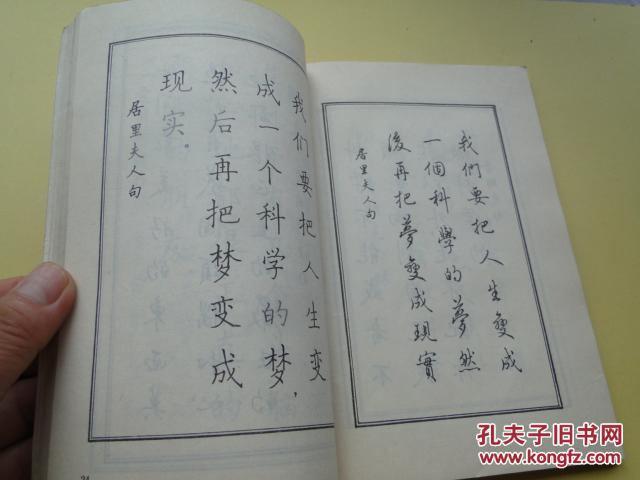 我们要把人生变
成一个科学的梦，
然后再把梦变成
现实。
居里夫人句
24
我们要把人生變成
一個科學的夢然
後再把夢變成現實
居里夫人句
孔夫子旧书网
www.kongfz.com